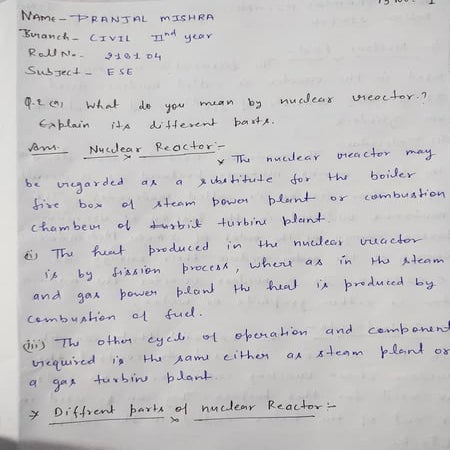 NAME - PRANJAL MISHRA
Branch - CIVIL IInd year
Roll No. - 218104
Subject - ESE
Q.2 (a) What do you mean by nuclear reactor.?
Explain its different parts.
Ans. Nuclear Reactor :-
* The nuclear reactor may
be regarded as a substitute for the boiler
fire box of steam power plant or combustion
chamber of turbit turbine plant.
(i) The heat produced in the nuclear reactor
is by fission process, where as in the steam
and gas power plant the heat is produced by
combustion of fuel.
(iii) The other cycle of operation and component
required is the same either as steam plant or
a gas turbine plant.
* Diffrent parts of nuclear Reactor :-